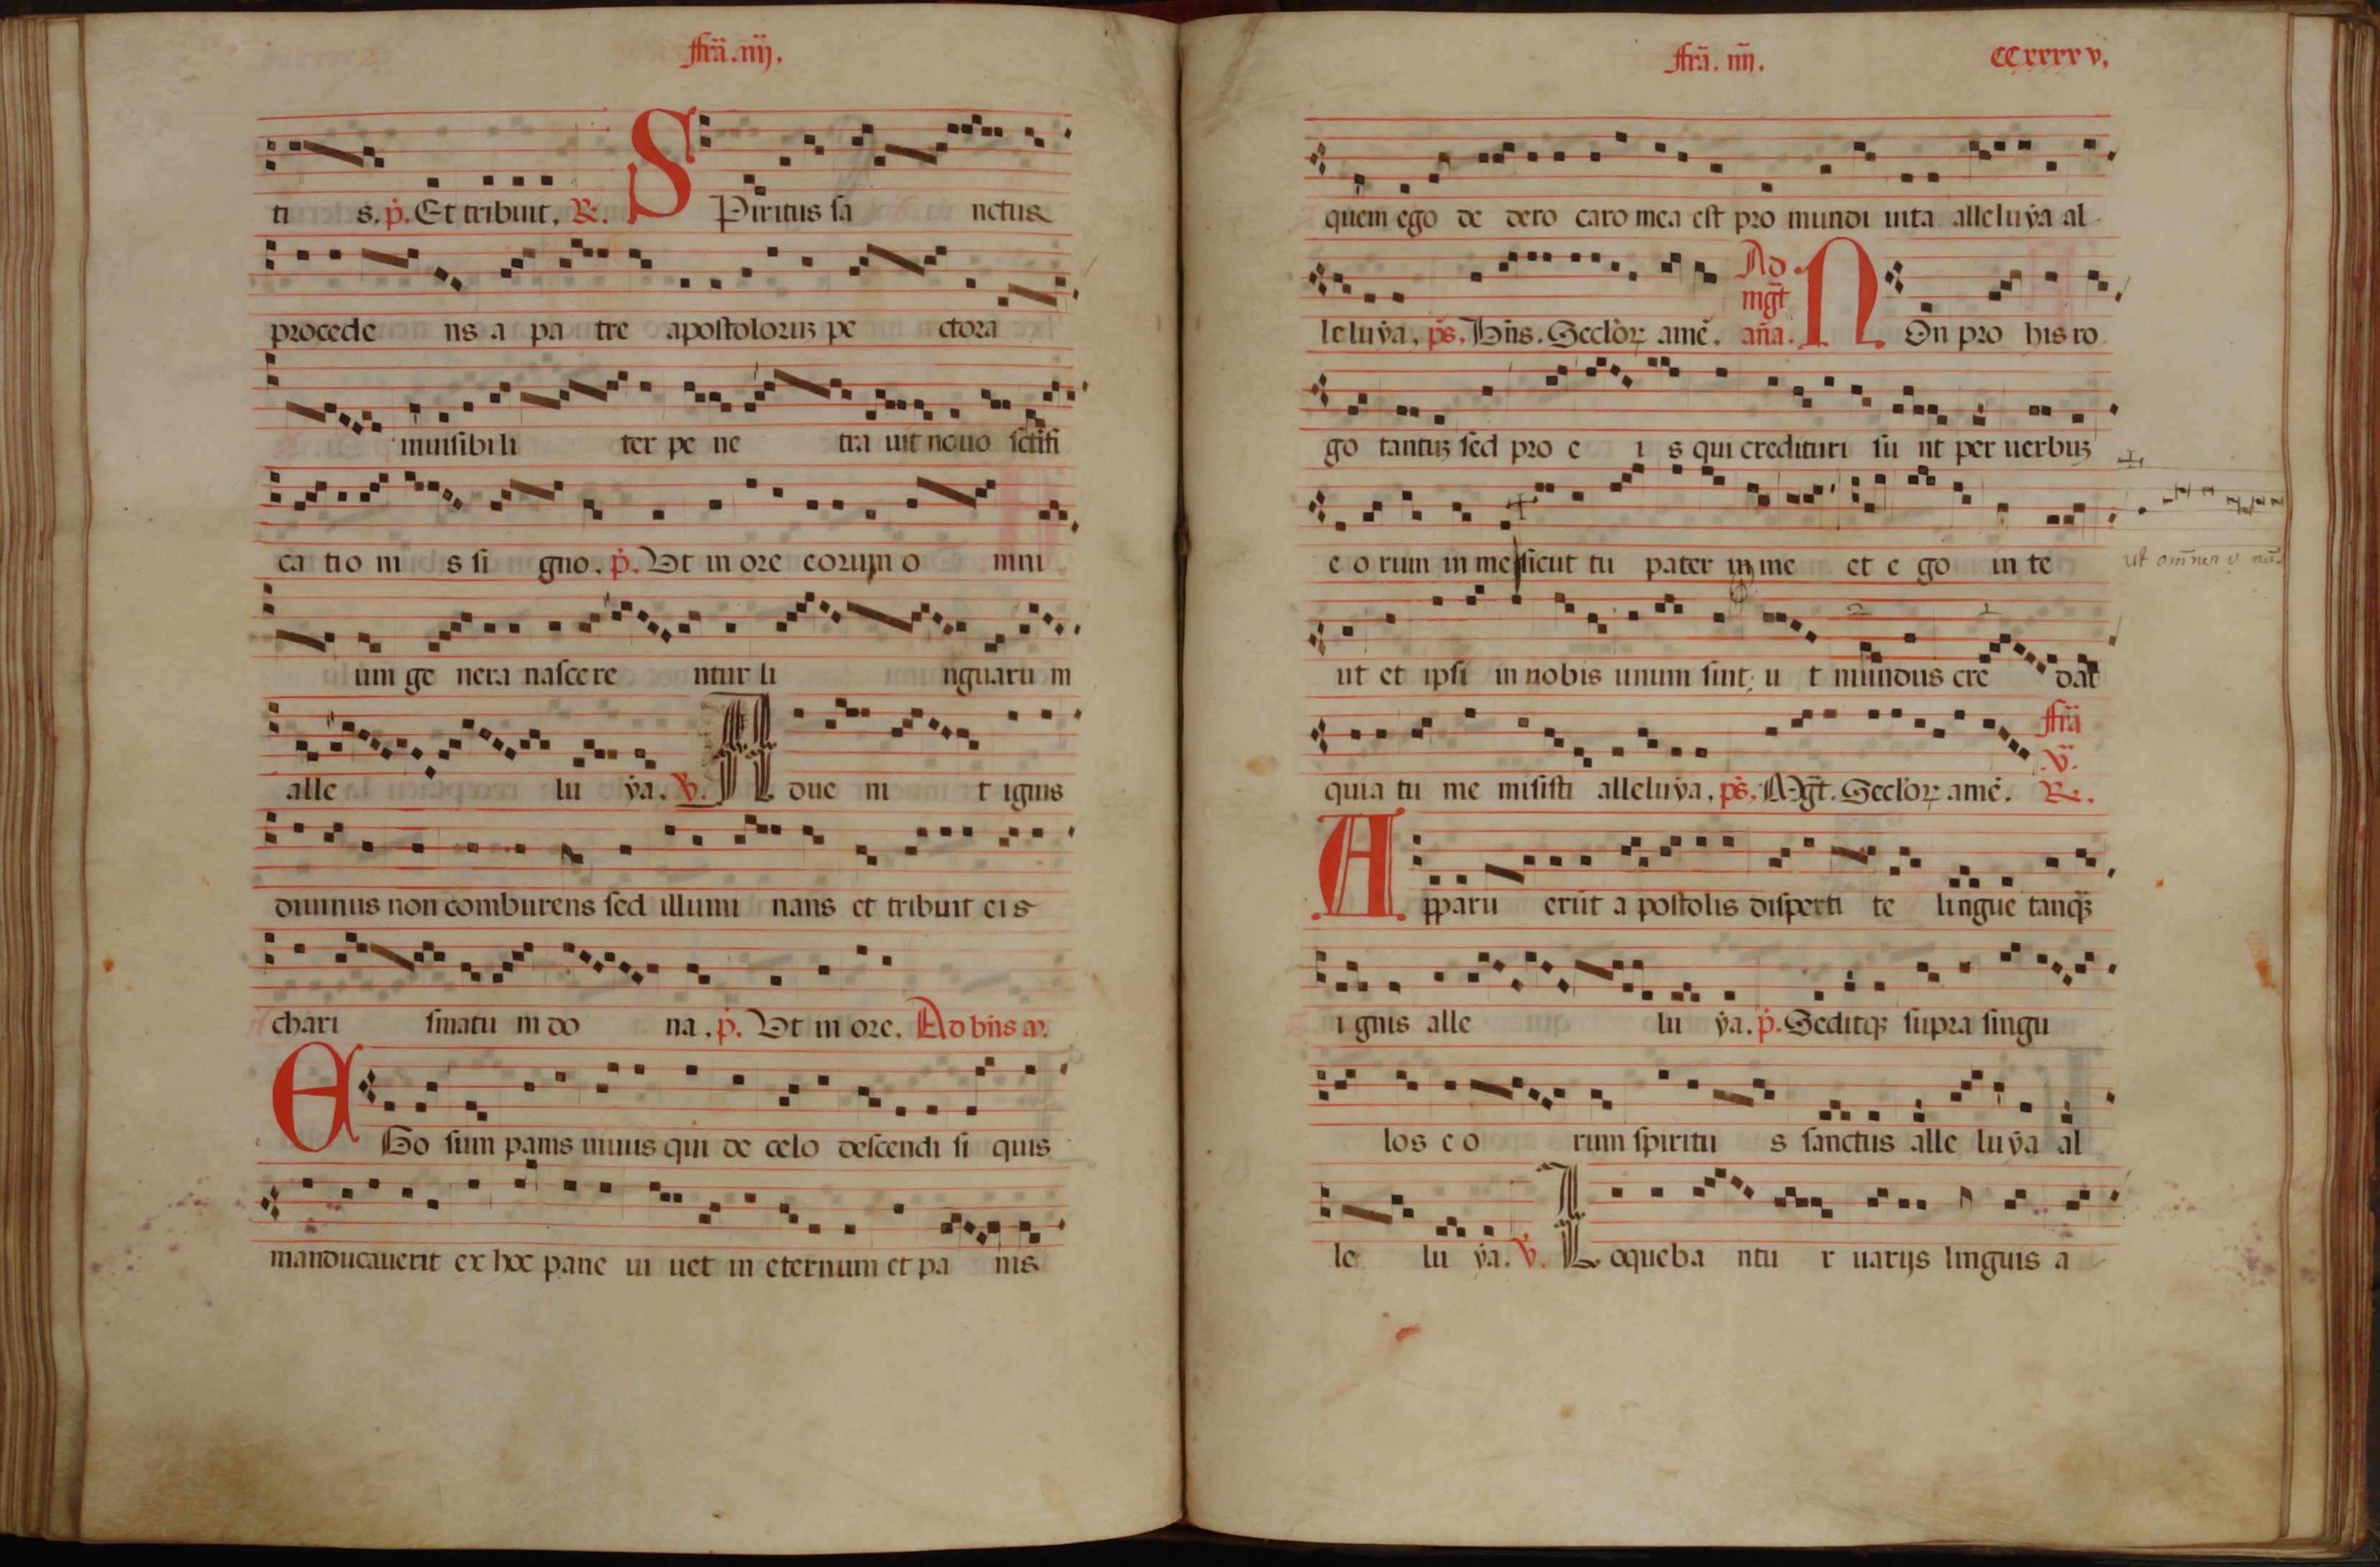 ffra. iiij.
ti s. p. Et tribuit. R. SPiritus sa nctus
procede ns a pa tre apostoloruʒ pe ctora
inuisibi li ter pe ne tra uit nouo sctifi
ca tio ni s si gno. p. Vt in ore eorum o mni
um ge nera nascere ntur li nguaru m
alle lu ẏa. V. A due ni t ignis
diuinus non comburens sed illumi nans et tribuit eis
chari smatu m do na. p. Vt in ore. Ad bñs a.
EGo sum panis uiuus qui de celo descendi si quis
manducauerit ex hoc pane ui uet in eternum et pa nis
ffrã. iiij. CCxxxxv.
quem ego de dero caro mea est pro mundi uita alleluẏa al
leluẏa. ps. Bñs. Seclor amē. Ad mgt aña. NOn pro his ro
go tantuʒ sed pro e i s qui credituri su nt per uerbuʒ
e o rum in me sicut tu pater in me et e go in te
ut om̃nes v nũ
ut et ipsi in nobis unum sint: u t mundus cre dat
quia tu me misisti alleluẏa. ps. Mgt. Seclor amē. ffrã V. R.
Apparu erūt a postolis disperti te lingue tanqʒ
i gnis alle lu ẏa. p. Seditqʒ supra singu
los e o rum spiritu s sanctus alle luẏa al
le lu ẏa. V. Loqueba ntu r uarijs linguis a